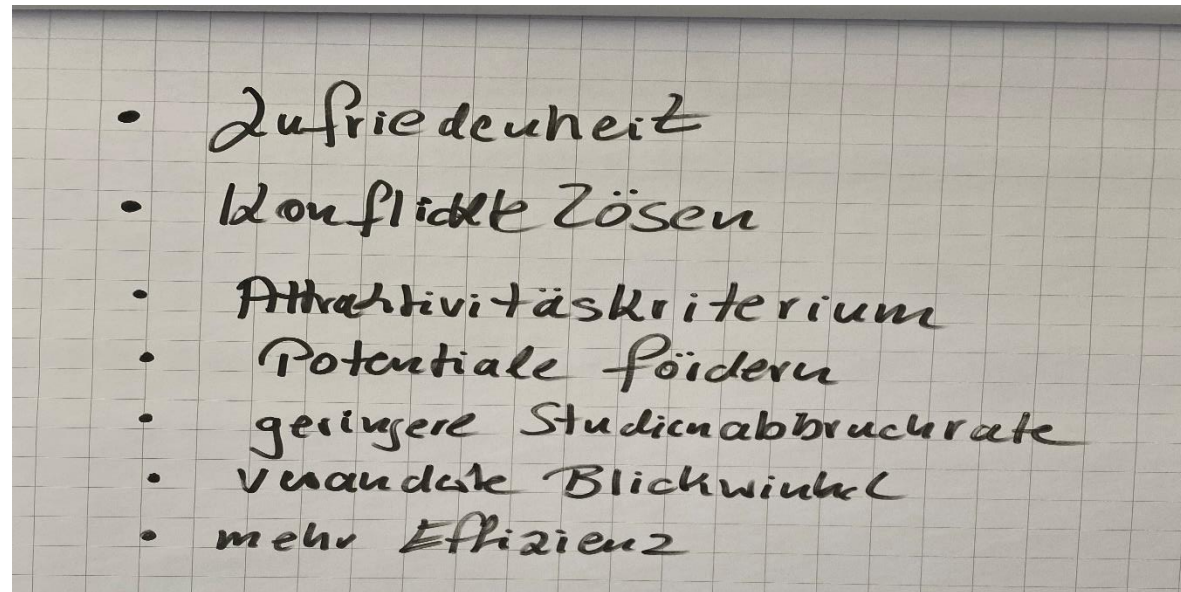 • Zufriedenheit
• Konflickte lösen
• Attraktivitäskriterium
• Potentiale fördern
• geringere Studienabbruchrate
• veranderte Blickwinkel
• mehr Effizienz